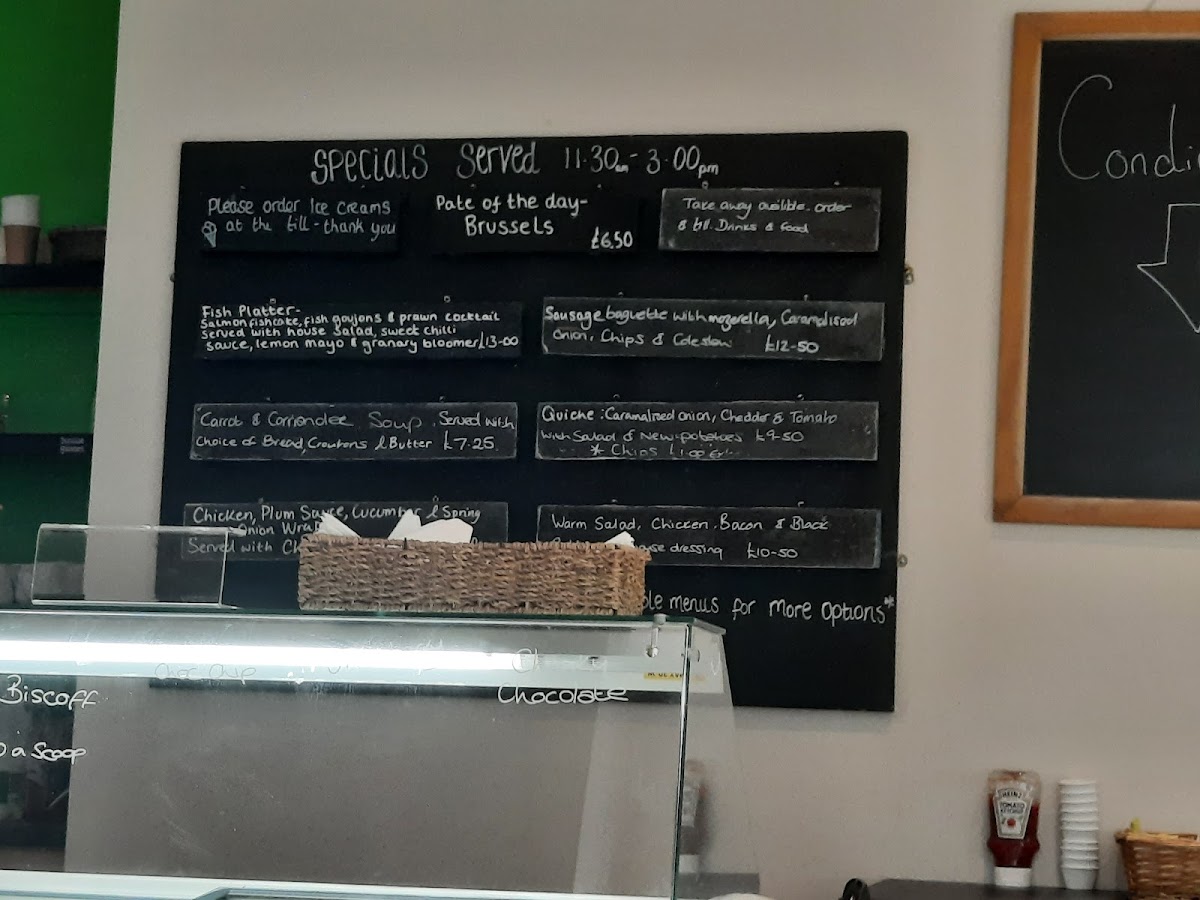 Specials Served 11.30am - 3.00pm
Please order Ice creams
at the till - thank you
Pate of the day-
Brussels
£6.50
Take away availible. order
@ till. Drinks & food
Fish Platter-
Salmon fishcake, fish goujons & prawn cocktail
Served with house salad, sweet chilli
sauce, lemon mayo & granary bloomer £13-00
Sausage baguette with mozerella, Caramalised
onion, Chips & Coleslaw £12-50
Carrot & Corriondee Soup. Served with
Choice of Bread, Croutons & Butter £7.25
Quiche: Caramalised onion, Chedder & Tomato
with Salad & New-potatoes £9-50
* Chips £1.00 Ex
Chicken, Plum Sauce, Cucumber & Spring
Onion Wrap
Served with Ch
Warm Salad, Chicken, Bacon & Black
dressing £10-50
menus for more options*
Condi
Biscoff
Choc Chip
Chocolate
a Scoop
HEINZ
TOMATO
KETCHUP